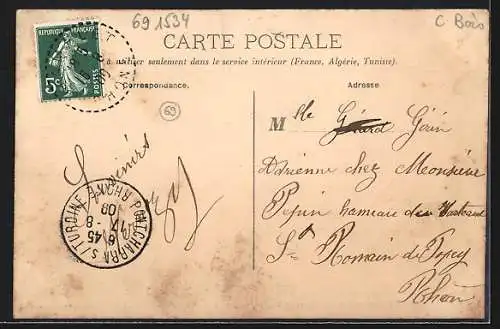 69 1534
C Bois
RÉPUBLIQUE FRANÇAISE
5c
POSTES
CARTE POSTALE
à utiliser seulement dans le service intérieur (France, Algérie, Tunisie).
Correspondance.
Adresse
69
Souvenirs
PONTCHARRA S/TURDINE RHONE
6 45
17 - 8
09
Mlle Gérard Gérin
Adrienne chez Meonsieur
Pepin hameau des
St Romain de Popey
Rhône